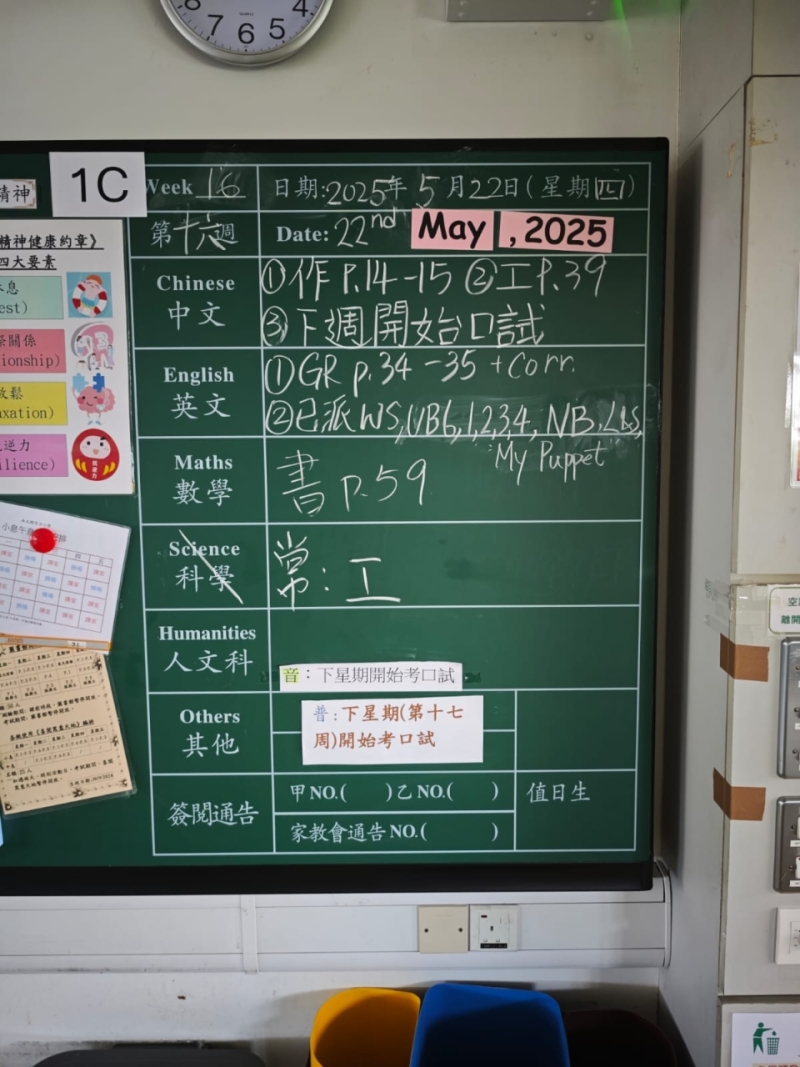 8 7 6 5 4
精神
1C
Week 16
日期:2025年5月22日(星期四)
第十六週
Date: 22nd May, 2025
精神健康約章》
四大要素
息
est)
關係
ionship)
鬆
axation)
逆力
ilience)
Chinese
中文
①作 p.14-15 ②工 p.39
③下週開始口試
English
英文
①GR p.34-35 + Corr.
②已派WS,
1,2,3,4, NB,
My Puppet
Maths
數學
書 p.59
Science
科學
常: 工
Humanities
人文科
音：下星期開始考口試
Others
其他
普：下星期(第十七
周)開始考口試
簽閱通告
甲 NO.( )乙 NO.( )
家教會通告 NO.( )
值日生